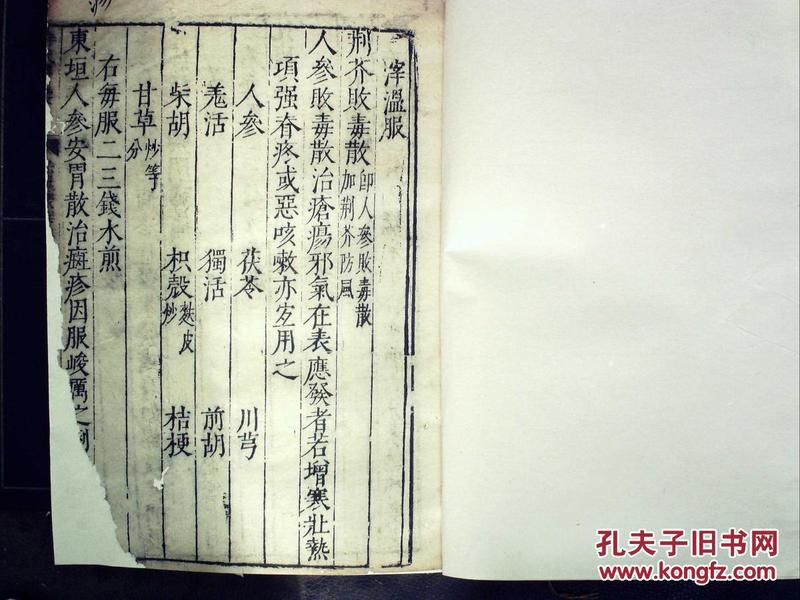 滓溫服
荆芥敗毒散即人參敗毒散加荆芥防風
人參敗毒散治瘡瘍邪氣在表應發者若增寒壯熱
項强脊疼或惡咳嗽亦宜用之
人參 茯苓 川芎
羗活 獨活 前胡
柴胡 枳殼麩皮炒 桔梗
甘草炒等分
右每服二三錢水煎
東垣人參安胃散治癍疹因服峻厲之劑
孔夫子旧书网
www.kongfz.com